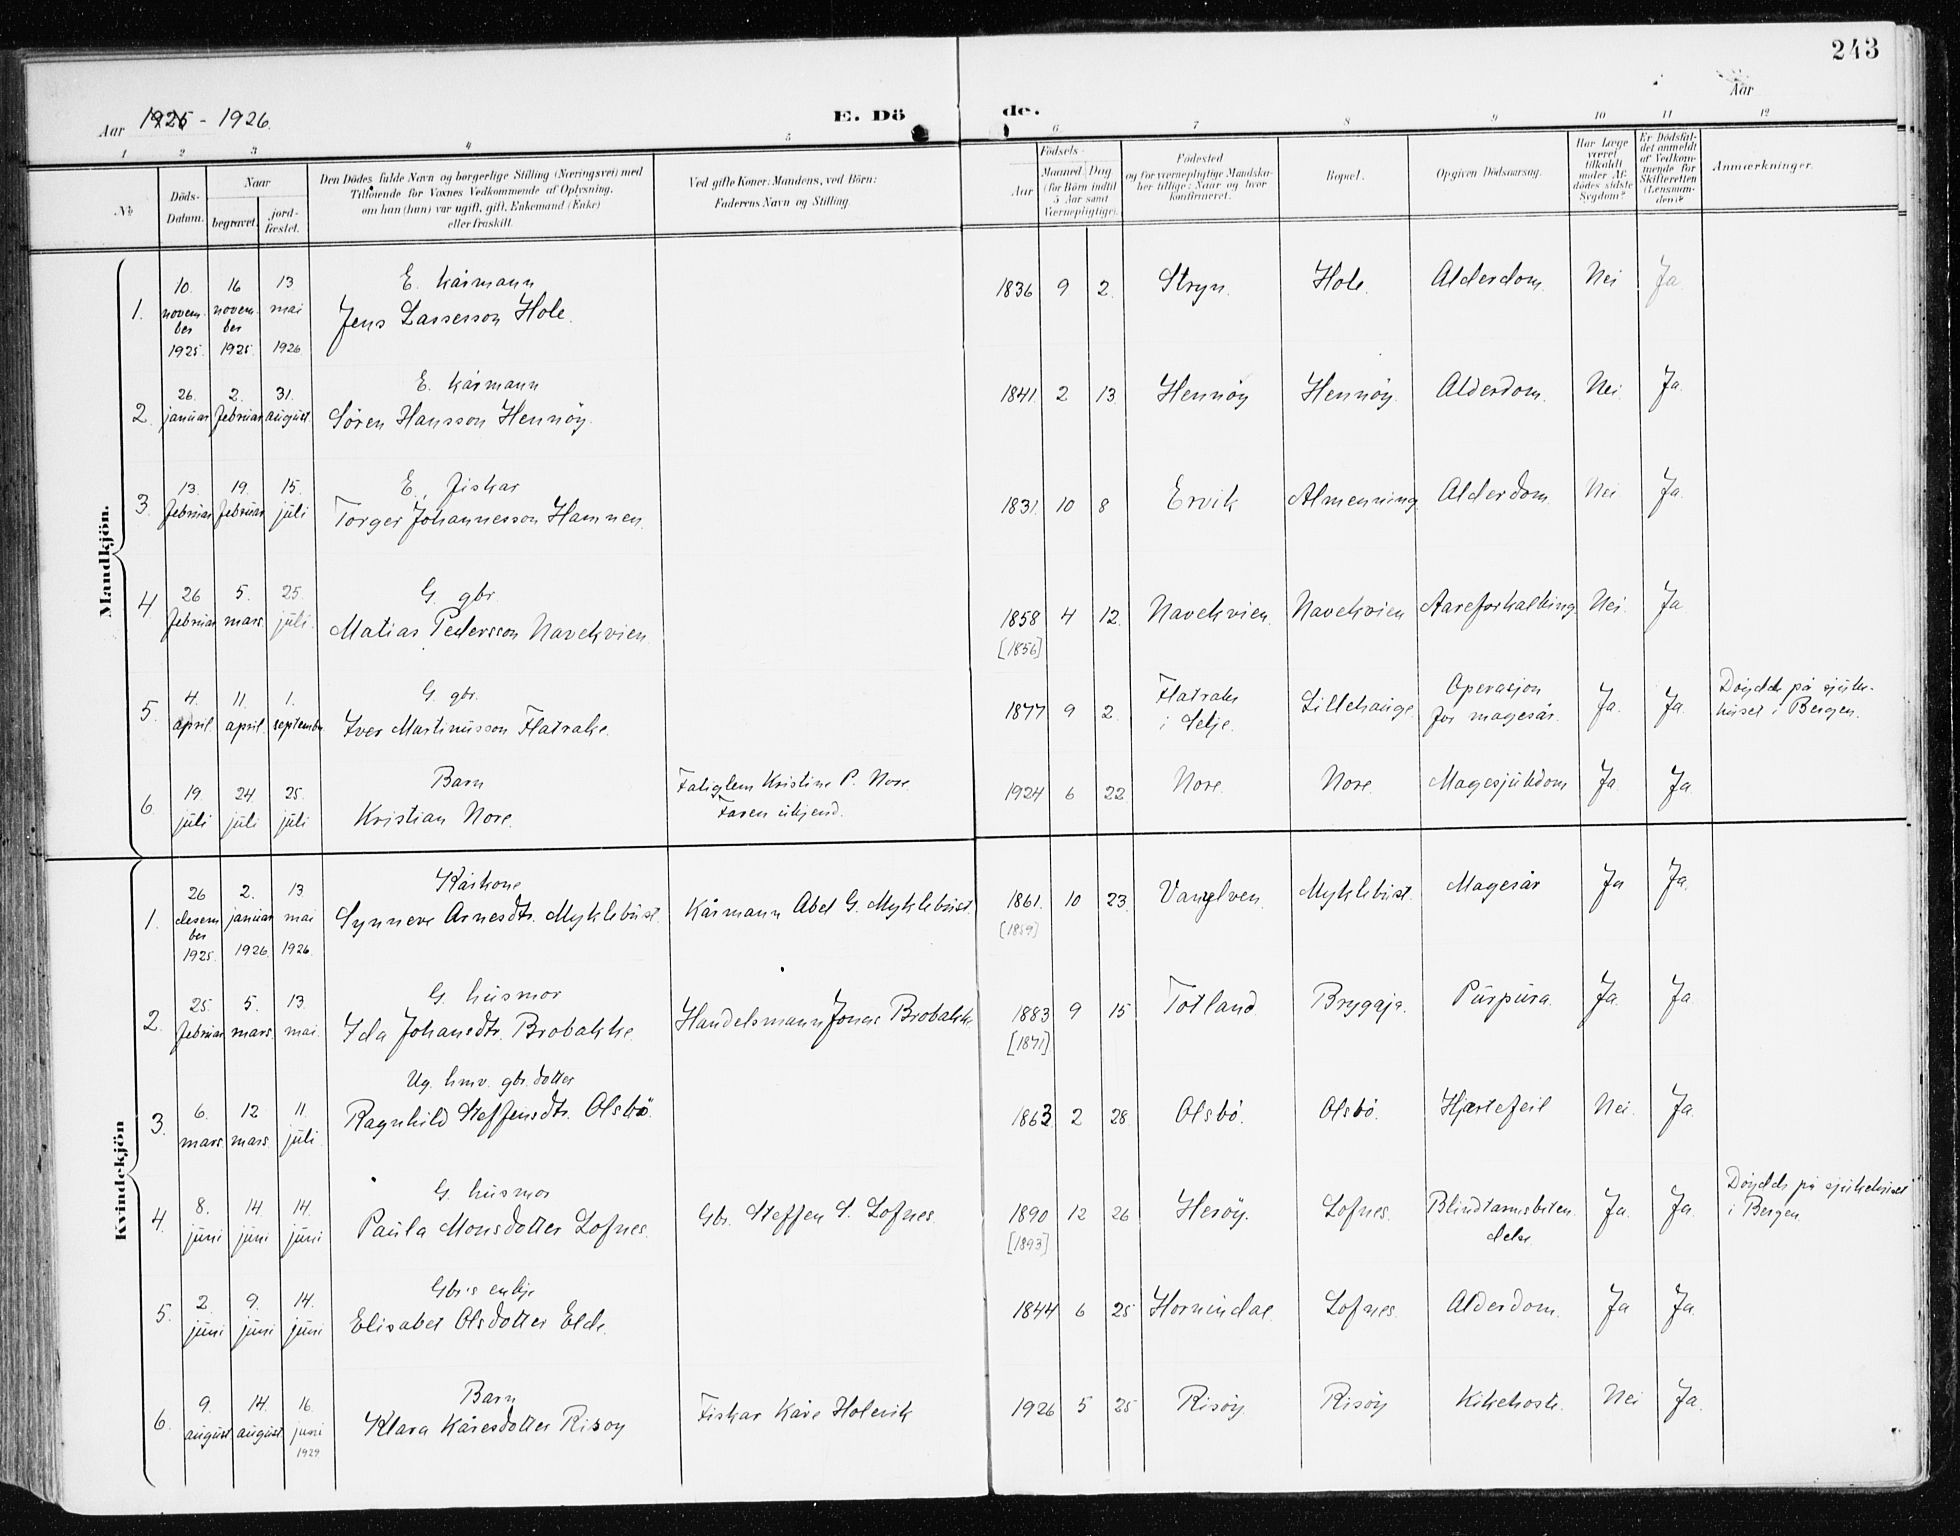 243
Aar 1925 - 1926.
E. Döde.
Aar
1 2 3 4 5 6 7 8 9 10 11 12
No.
Döds-Datum.
Naar
begravet.
jord-fæstet.
Den Dödes fulde Navn og borgerlige Stilling (Næringsvei) med
Tilföiende for Voxnes Vedkommende af Oplysning,
om han (hun) var ugift, gift, Enkemand (Enke)
eller fraskilt.
Ved gifte Koner: Mandens, ved Börn:
Faderens Navn og Stilling.
Födsels-
Aar
Maaned Dag
(for Börn indtil
5 Aar samt
Værnepligtige).
Födested
og for værnepligtige Mandska-
ber tillige: Naar og hvor
konfirmeret.
Bopæl.
Opgiven Dödsaarsag.
Har Læge
været
tilkaldt
under Af-
dödes sidste
Sygdom?
Er Dödsfal-
det anmeldt
af Vedkom-
mende for
Skifteretten
(Lensman-
den)?
Anmærkninger.
Mandkjön.
1. 10. november 1925. 16 november 1925. 13 mai 1926 E. kårmann
Jens Lassesson Hole. 1836 9 2. Stryn. Hole. Alderdom. Nei Ja.
2. 26. januar 2. februar 31. august. E. kårmann
Sören Hansson Hennöy. 1841. 2 13. Hennöy Hennöy. Alderdom. Nei. Ja.
3. 13. februar 19. februar 15. juli E. fiskar
Torger Johannesson Hamnen. 1831. 10 8 Ervik Almenning Alderdom. Nei Ja.
4 26 februar 5. mars 25. juli. G. gbr.
Matias Pedersson Navekvien. 1858 [1856] 4 12. Navekvien. Navekvien Aareforkalking Nei. Ja.
5. 4. april. 11. april. 1. september G. gbr.
Iver Martinusson Flatrake. 1877 9 2. Flatrake i Selje. Lillehauge Operasjon for magesår. Ja. Ja. Döydde på sjuke-
huset i Bergen.
6. 19. juli 24. juli 25. juli Barn
Kristian Nore. Kristine P. Nore
Faren ukjend. 1924 6 22. Nore. Nore. Magesjukdom Ja. Ja.
Kvindekjön
1. 26 desember 1925. 2. januar 1926. 13. mai 1926. Kårkone
Synneve Arnesdtr. Myklebust. Kårmann Abel G. Myklebust. 1861. [1859] 10 23. Vanylven. Myklebust. Magesår Ja Ja.
2. 25. februar 5. mars. 13. mai. G. husmor
Ida Johansdtr. Brobakke. Handelsmann Jonas Brobakke 1883 [1871] 9 15 Totland Bryggja. Purpura. Ja. Ja.
3. 6. mars 12 mars. 11. juli Ug. hmv. gbr. dotter
Ragnhild Steffensdtr. Olsbö. 1863 2 28. Olsbö. Olsbö. Hjartefeil Nei. Ja.
4. 8. juni 14. juni 14. juni G. husmor
Paula Monsdotter Lofnes. Gbr. Steffen S. Lofnes. 1890 [1893] 12 26 Heröy. Lofnes. Ja. Ja. Döydde på sjukehuset
i Bergen.
5. 2. juni 9. juni 14. juni Gbr's enkje
Elisabet Olsdotter Elde. 1844 6 25 Hornindal Lofnes. Alderdom. Ja Ja.
6. 9. august 14. august 16. juni 1929 Barn
Klara Kåresdotter Risöy Fiskar Kåre Holevik 1926 5 25 Risöy. Risöy Kikehoste. Nei Ja.